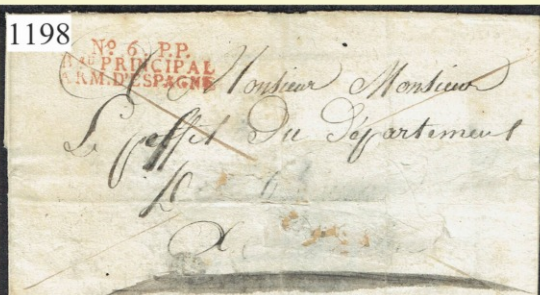 1198
No 6. P.P.
Bau PRINCIPAL
ARM. D'ESPAGNE
Monsieur Monsieur
Le Préfet Du Département
A